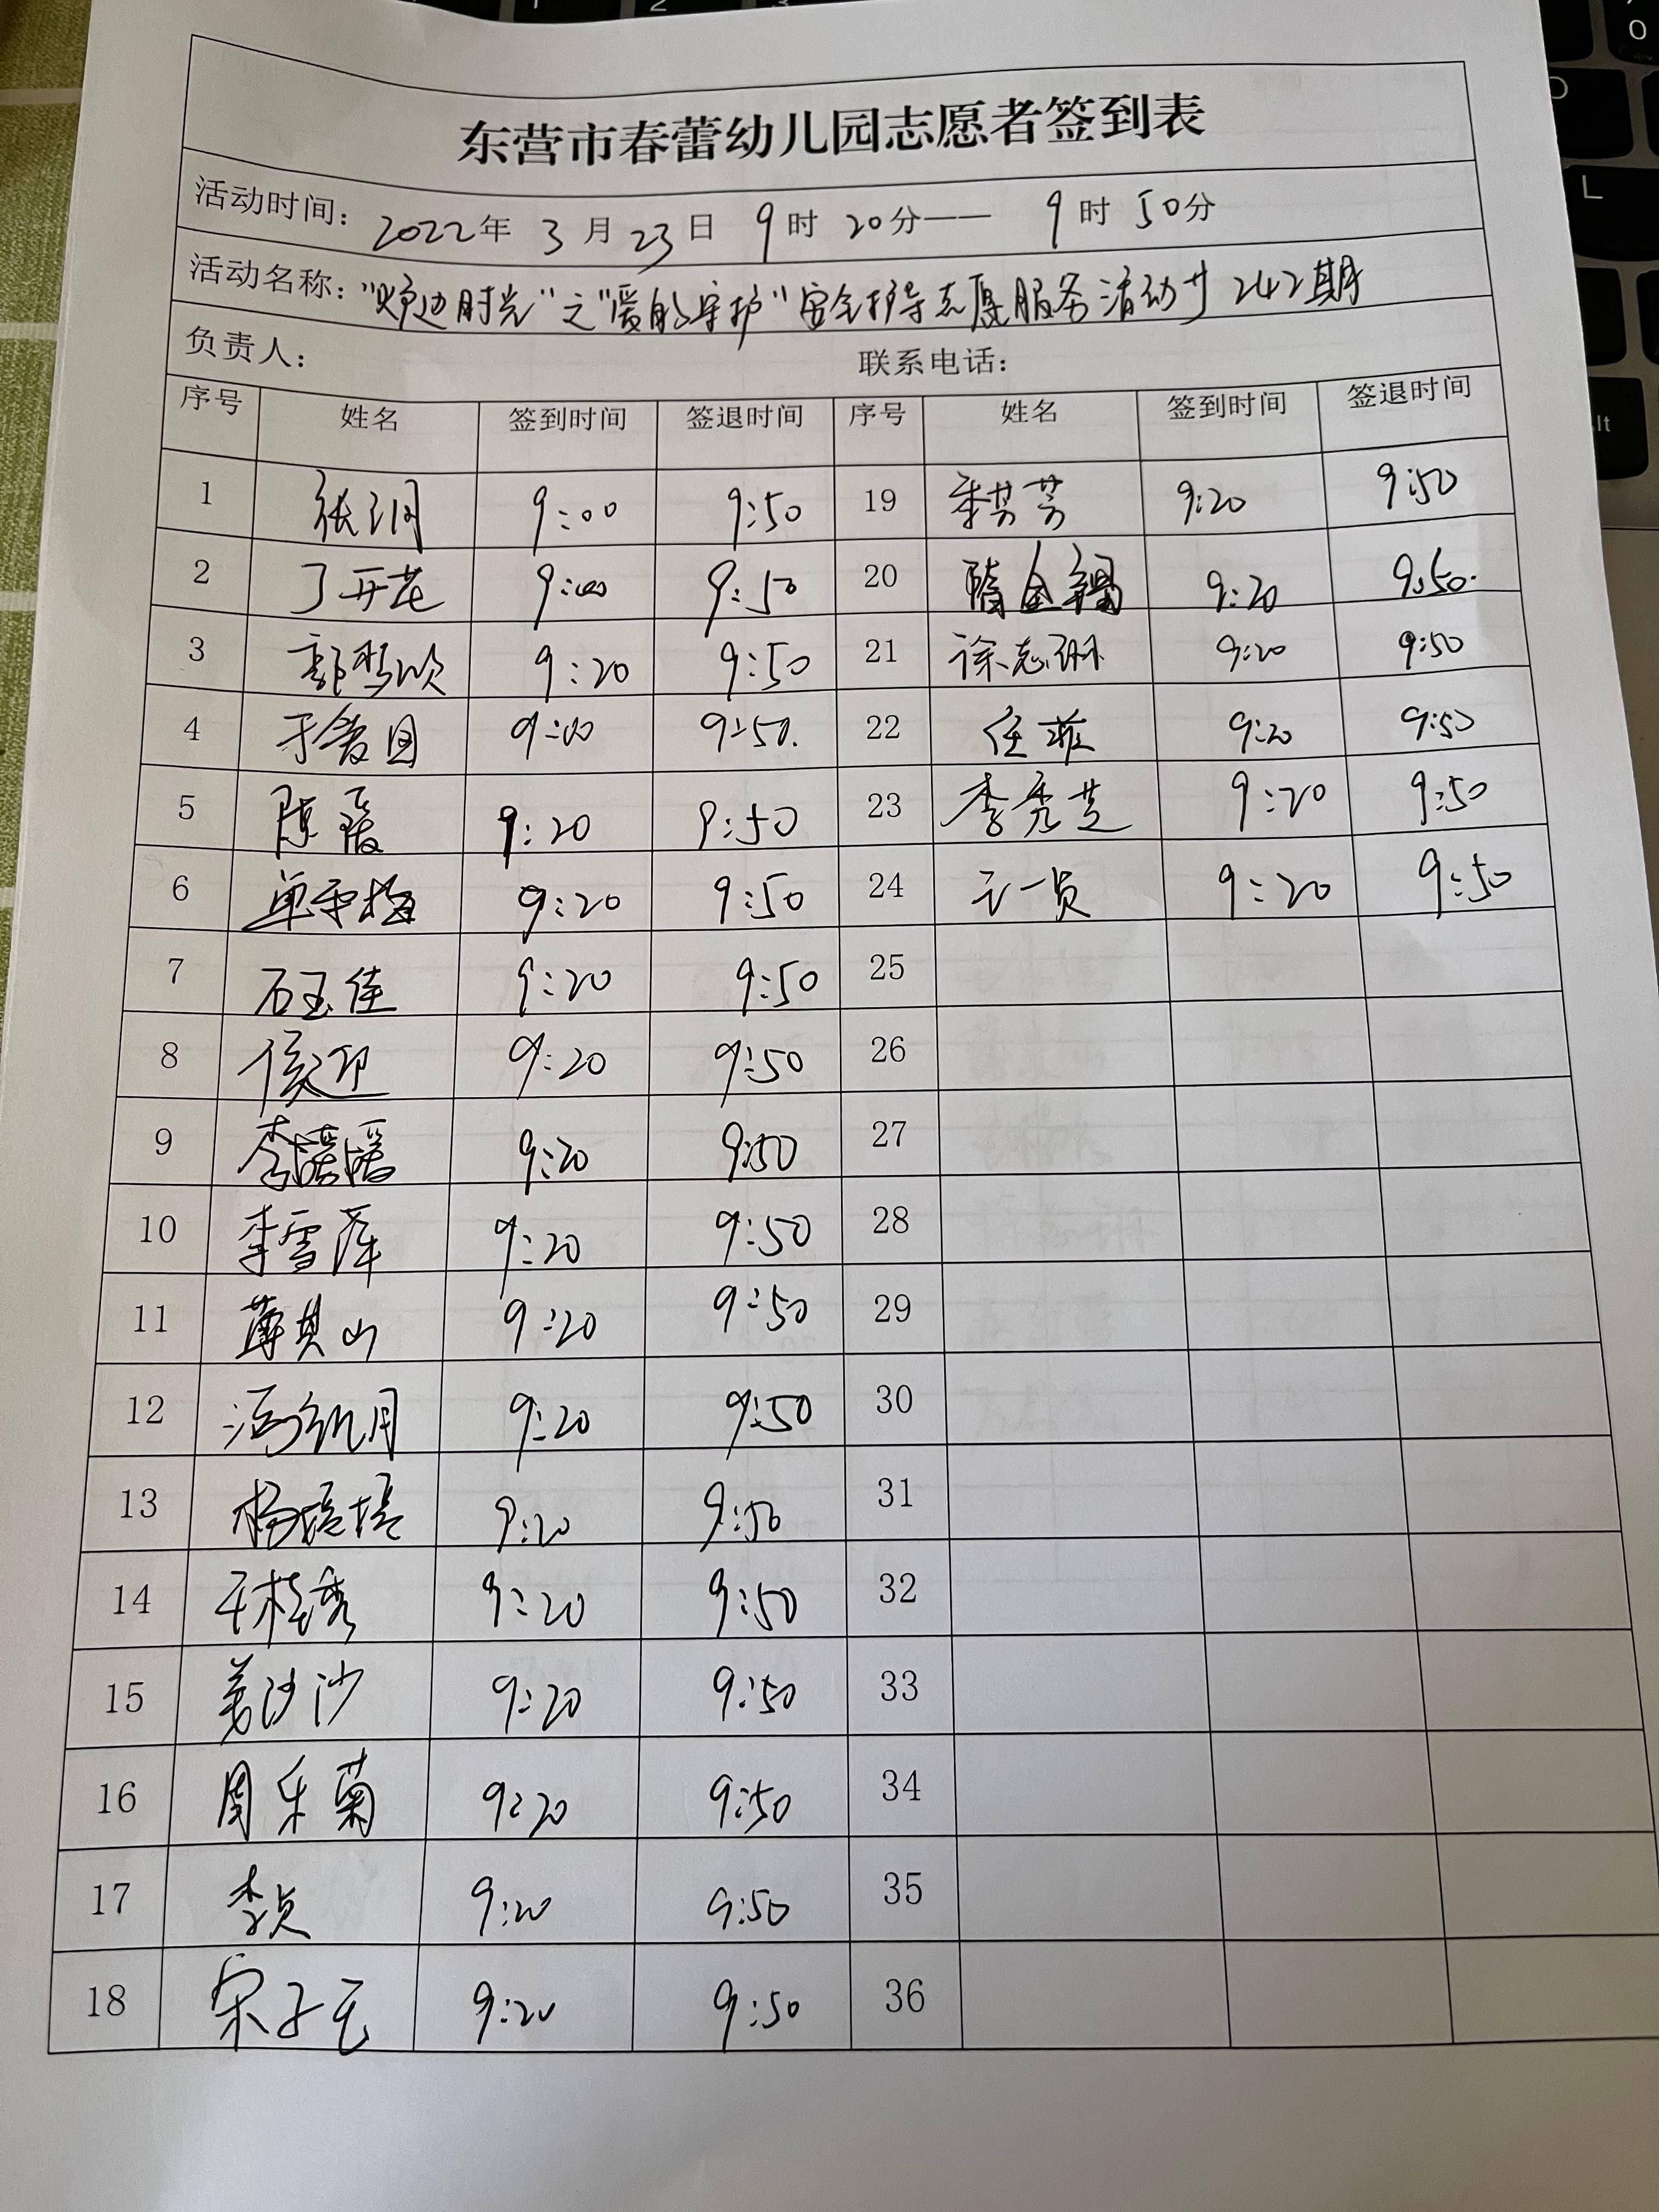 东营市春蕾幼儿园志愿者签到表
活动时间: 2022年 3月23日 9时20分—— 9时50分
活动名称:"炉边时光"之"暖的守护"安全护导志愿服务活动 242期
负责人: 联系电话:
序号 姓名 签到时间 签退时间 序号 姓名 签到时间 签退时间
1 张润 9:00 9:50 19 季芸芳 9:20 9:50
2 丁开花 9:00 9:50 20 隋金 9:20 9:50.
3 郭梦欣 9:20 9:50 21 徐志琳 9:20 9:50
4 于鲁园 9:00 9:50. 22 任菲 9:20 9:50
5 陈瑗 9:20 9:50 23 李秀芝 9:20 9:50
6 单秀梅 9:20 9:50 24 9:20 9:50
7 石玉佳 9:20 9:50 25
8 侯迎 9:20 9:50 26
9 李媛媛 9:20 9:50 27
10 李雪萍 9:20 9:50 28
11 薄其山 9:20 9:50 29
12 冯月 9:20 9:50 30
13 杨培培 9:20 9:50 31
14 王桂秀 9:20 9:50 32
15 姜沙沙 9:20 9:50 33
16 周乐菊 9:20 9:50 34
17 李贞 9:20 9:50 35
18 宋子元 9:20 9:50 36